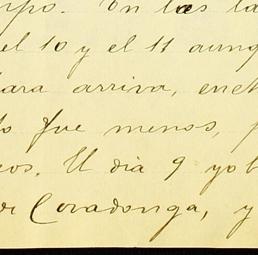 rpo. En las la
el 10 y el 11 aunq
para arriva, en
fue menos, p
cos. El dia 9 yo
Covadonga, y